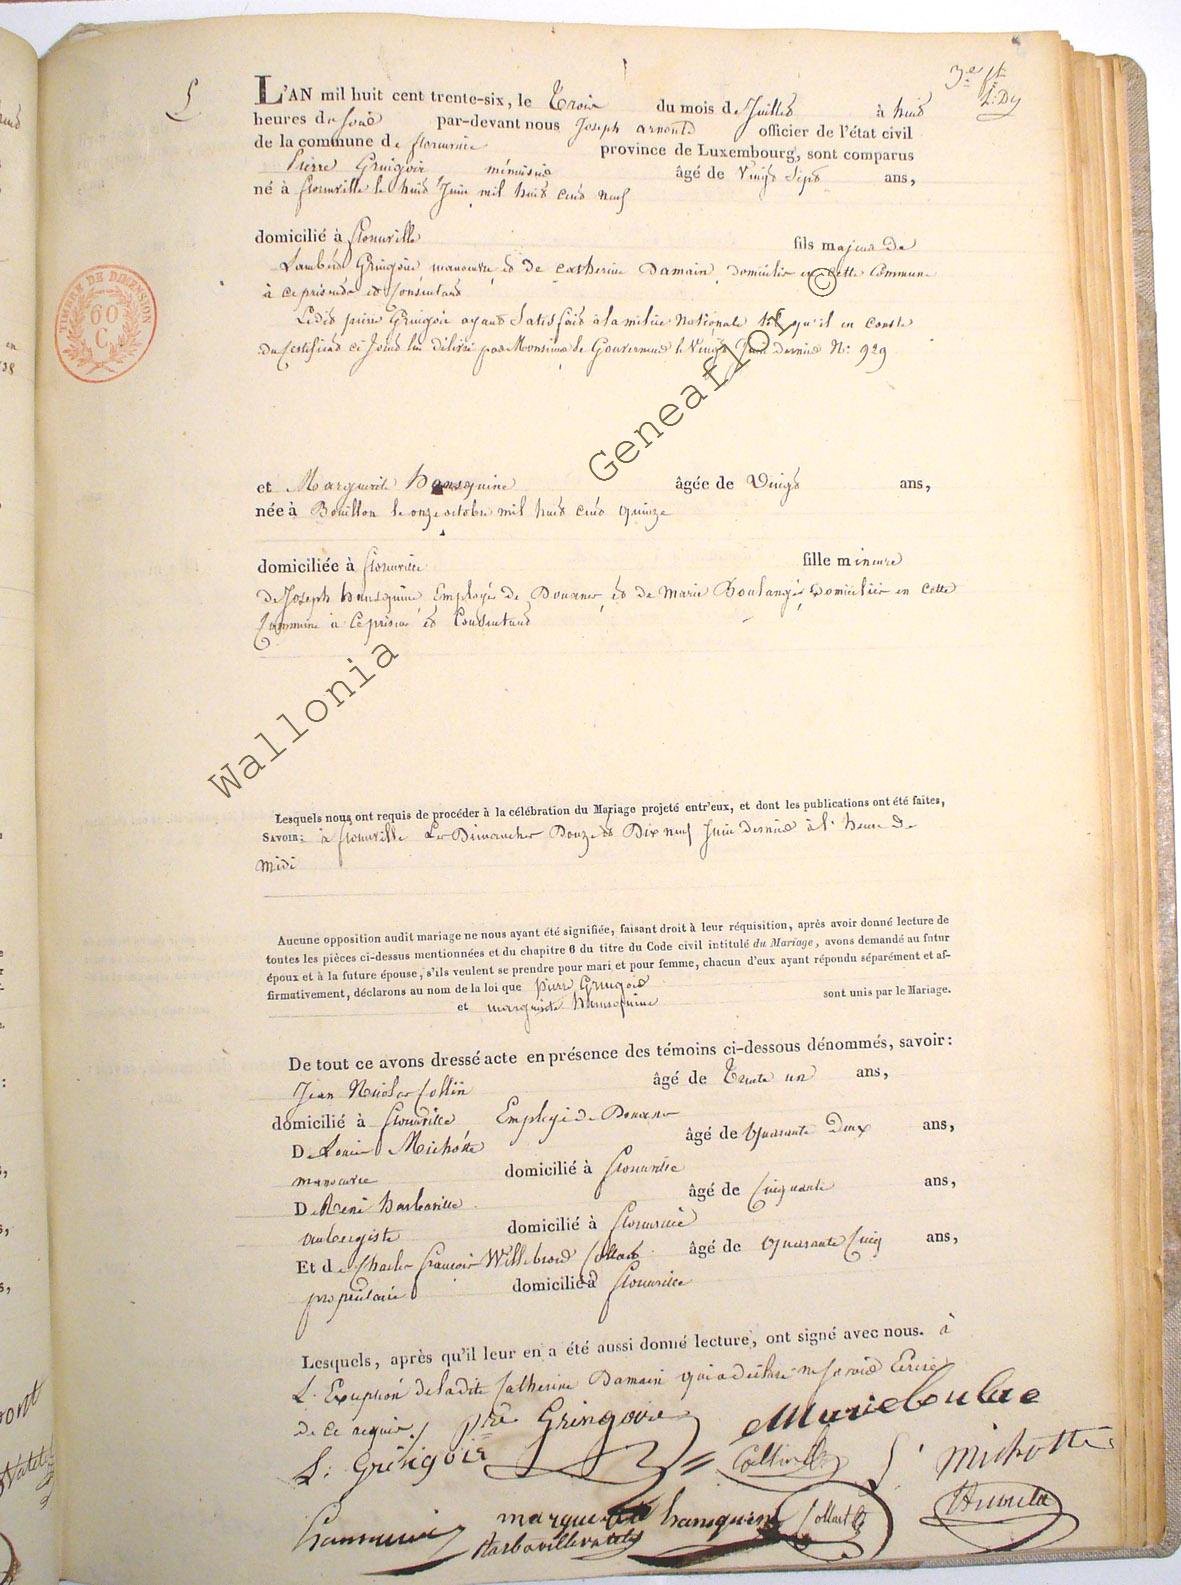 3e ft
L: Dy
5
L'AN mil huit cent trente-six, le Trois du mois de Juillet à huit
heures du soir par-devant nous Joseph arnould officier de l'état civil
de la commune de florenville province de Luxembourg, sont comparus
Pierre Gringoir ménuisier âgé de Vingt Sept ans,
né à florenville le huit Juin mil huit cent neuf
domicilié à florenville fils majeur De
Lambert Gringoire manoeuvre et de catherine Damain domiciliés en cette Commune
à ce présents et Consentant
Ledit pierre Gringoir ayant Satisfait à la milice Nationale tel qu'il en conste
du Certificat ci Joint lui délivré par Monsieur le Gouverneur le Vingt Juin dernier No: 929
et Marguerite hansquine âgée de Vingt ans,
née à Bouillon le onze octobre mil huit cent quinze
domiciliée à florenville fille mineure
De Joseph hansquine Employé de Douanes et de Marie Boulanger Domiciliés en cette
Commune à ce présent et Consentant
Lesquels nous ont requis de procéder à la célébration du Mariage projeté entr'eux, et dont les publications ont été faites,
SAVOIR: à florenville Les Dimanches Douze et Dix neuf Juin dernier à l'heure de
midi
Aucune opposition audit mariage ne nous ayant été signifiée, faisant droit à leur réquisition, après avoir donné lecture de
toutes les pièces ci-dessus mentionnées et du chapitre 6 du titre du Code civil intitulé du Mariage, avons demandé au futur
époux et à la future épouse, s'ils veulent se prendre pour mari et pour femme, chacun d'eux ayant répondu séparément et af-
firmativement, déclarons au nom de la loi que Pierre Gringoir
et marguerite hansquine sont unis par le Mariage.
De tout ce avons dressé acte en présence des témoins ci-dessous dénommés, savoir:
Jean Nicolas Collin âgé de Trente un ans,
domicilié à florenville Employé de Douanes
De Louis Michotte âgé de Quarante Deux ans,
manoeuvre domicilié à florenville
De René harbaville âgé de Cinquante ans,
aubergiste domicilié à florenville
Et de Charles francois Willebrord Collard âgé de Quarante Cinq ans,
propriétaire domicilié à florenville
Lesquels, après qu'il leur en a été aussi donné lecture, ont signé avec nous. à
L'Exception de ladite Catherine Damain qui a déclaré ne savoir Ecrire
de ce requis
prre Gringoire
Marie boulae
L: Gringoir
Collin
L' Michotte
marguerite hansquine
Collart
Harbaville
TIMBRE DE DIMENSION
60
C.
Wallonia Geneaflor ©